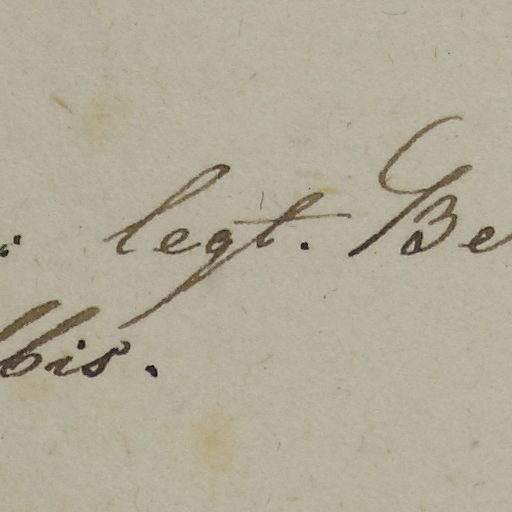 : legt. Be
bis.